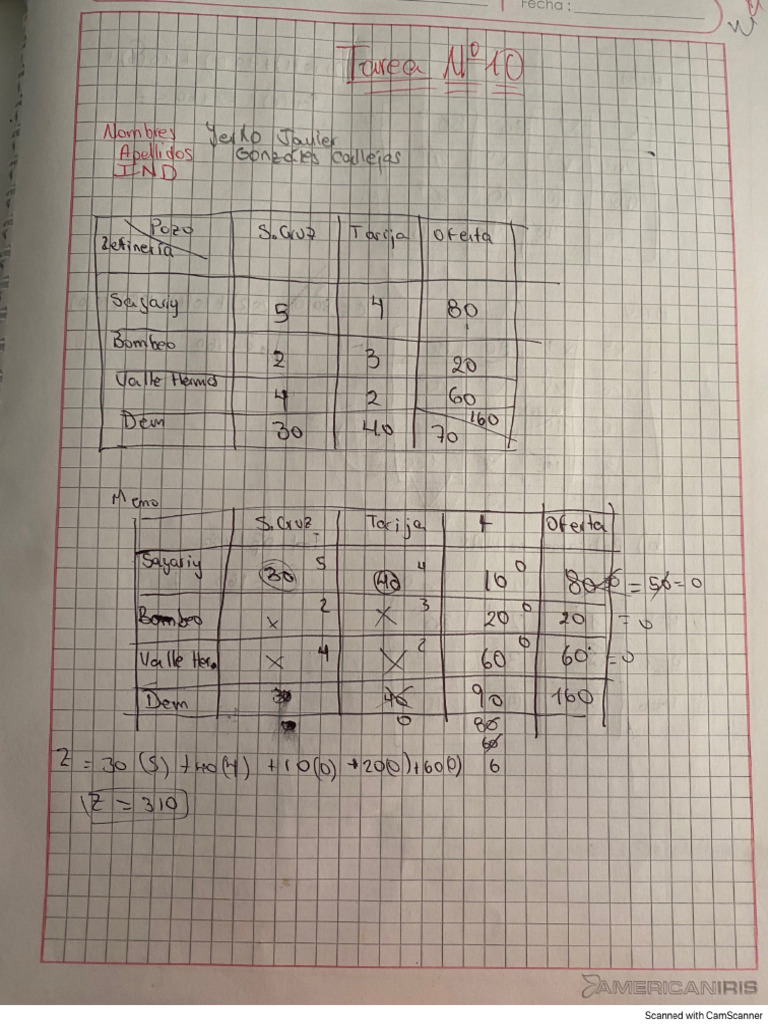 Fecha:
Tarea Nº 10
Nombres Yerko Javier
Apellidos Gonzales Callejas
IND
Pozo S.Cruz Tarija Oferta
Refineria
Sazariy 5 4 80
Bombeo 2 3 20
Valle Hermos 4 2 60
Dem 30 40 70 160
Meno
S.Cruz Tarija F Oferta
Sazariy 30 5 40 4 10 0 80 = = 0
Bombeo x 2 x 3 20 0 20 = 0
Valle Her. x 4 x 2 60 0 60 = 0
Dem 30 40 90 160
0 80
60
Z = 30(5) + 40(4) + 10(0) + 20(0) + 60(0) 6
Z = 310
AMERICANIRIS
Scanned with CamScanner